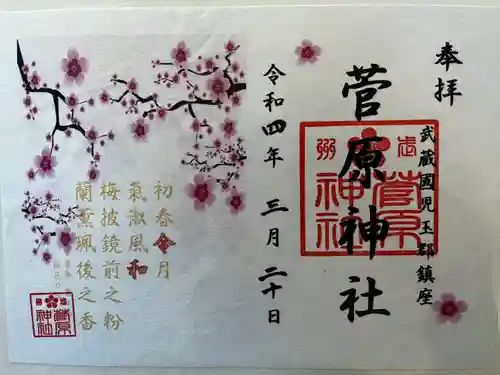 奉拝
武蔵國児玉郡鎮座
菅原神社
令和四年 三月 二十日
初春令月
氣淑風和
梅披鏡前之粉
蘭薫珮後之香